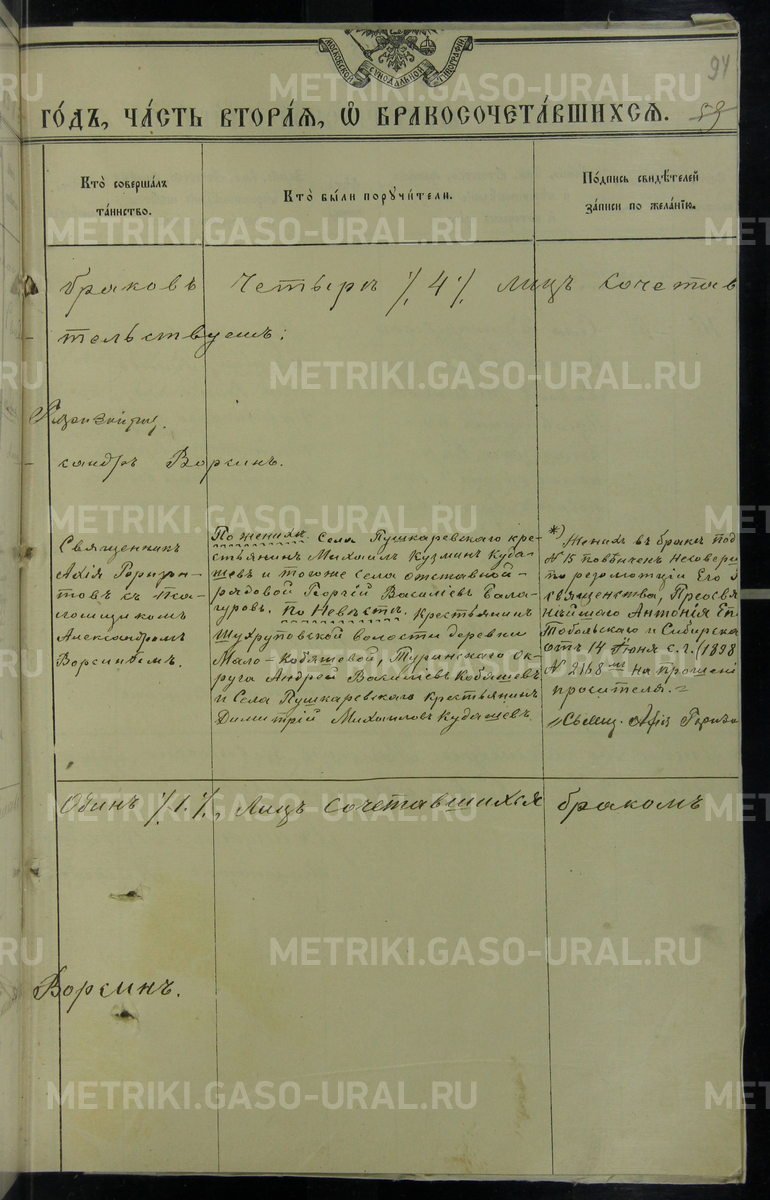 МОСКОВСКОЙ СѴНОДАЛЬНОЙ ТИПОГРАФІИ
94
ГО́ДЪ, ЧА́СТЬ ВТОРА́Я, Ѡ҆ БРАКОСОЧЕТА́ВШИХСЯ.
Кто̀ соверша́лъ
та́инство.
Кто̀ бы́ли поручи́тели.
По́дпись свидѣ́телей
за́писи по жела́нїю.
браковъ четыре % 4 %, лицъ сочетав
тельствуемъ:
сандръ Ворсинъ.
Священникъ
с пса-
ломщикомъ
Александромъ
Ворсинымъ.
По женихѣ. Села Пушкаревскаго кре-
стьянинъ Михаилъ Кузминъ Куда-
шевъ и тогоже села отставной
рядовой Георгій Василіевъ Бала-
гуровъ. По Невѣстѣ. Крестьянинъ
волости деревни
Мало-Кобяшовой, Туринскаго Ок-
руга Андрей Василіевъ Кобяшевъ
и Села Пушкаревскаго крестьянинъ
Димитрій Михаиловъ Кудашевъ.
*) Женихъ въ бракѣ под
№ 15 повѣнчен
по резолюціи Его
священства, Преосвя
нѣйшаго Антонія Еп
Тобольскаго и Сибирска
отъ 14 Іюня с.г. (1898
№ 2148 на прошені
просителя.=
Свящ.
Одинъ % 1. %, Лицъ сочетавшихся бракомъ
Ворсинъ.
METRIKI.GASO-URAL.RU